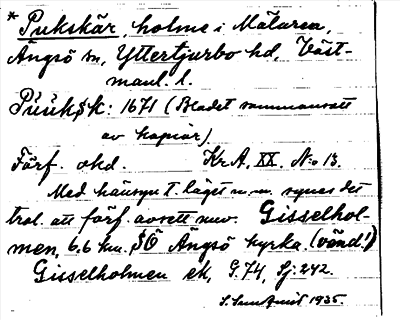 * Pukskär, holme i Mälaren,
Ängsö sn, Yttertjurbo hd, Väst-
manl. l.
Püükşk: 1671 (Bladet sammansatt
av kopior)
Förf. okd. Kr.A, XX, N:o 13.
Med hänsyn t. läget m.m. synes det
trol. att förf. avsett nuv. Gisselhol-
men, 6.6 km. SÖ Ängsö kyrka. (vänd!)
Gisselholmen ek, G.74, Sj: 242.
1935.